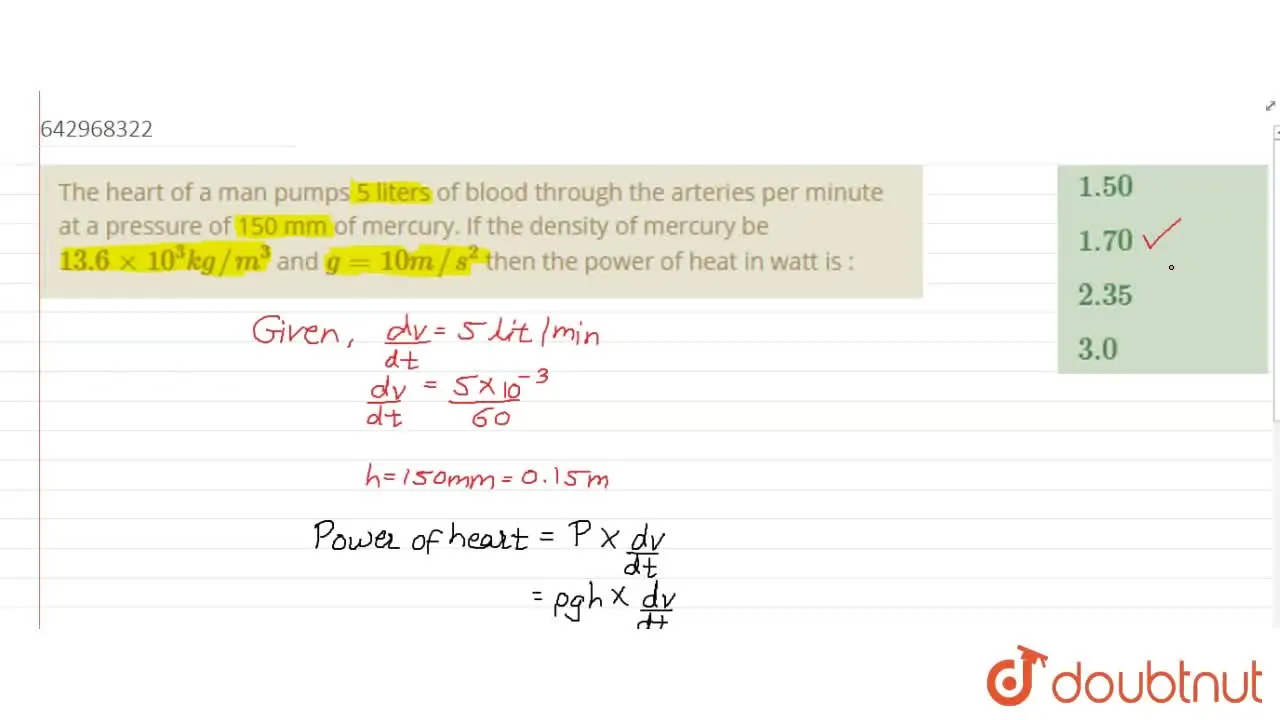 642968322
The heart of a man pumps 5 liters of blood through the arteries per minute
at a pressure of 150 mm of mercury. If the density of mercury be
13.6 × 10³kg/m³ and g = 10m/s² then the power of heat in watt is :
1.50
1.70 ✓
2.35
3.0
Given, dv/dt = 5 lit/min
dv/dt = 5×10⁻³/60
h=150mm=0.15m
Power of heart = P × dv/dt
= ρgh × dv/dt
doubtnut